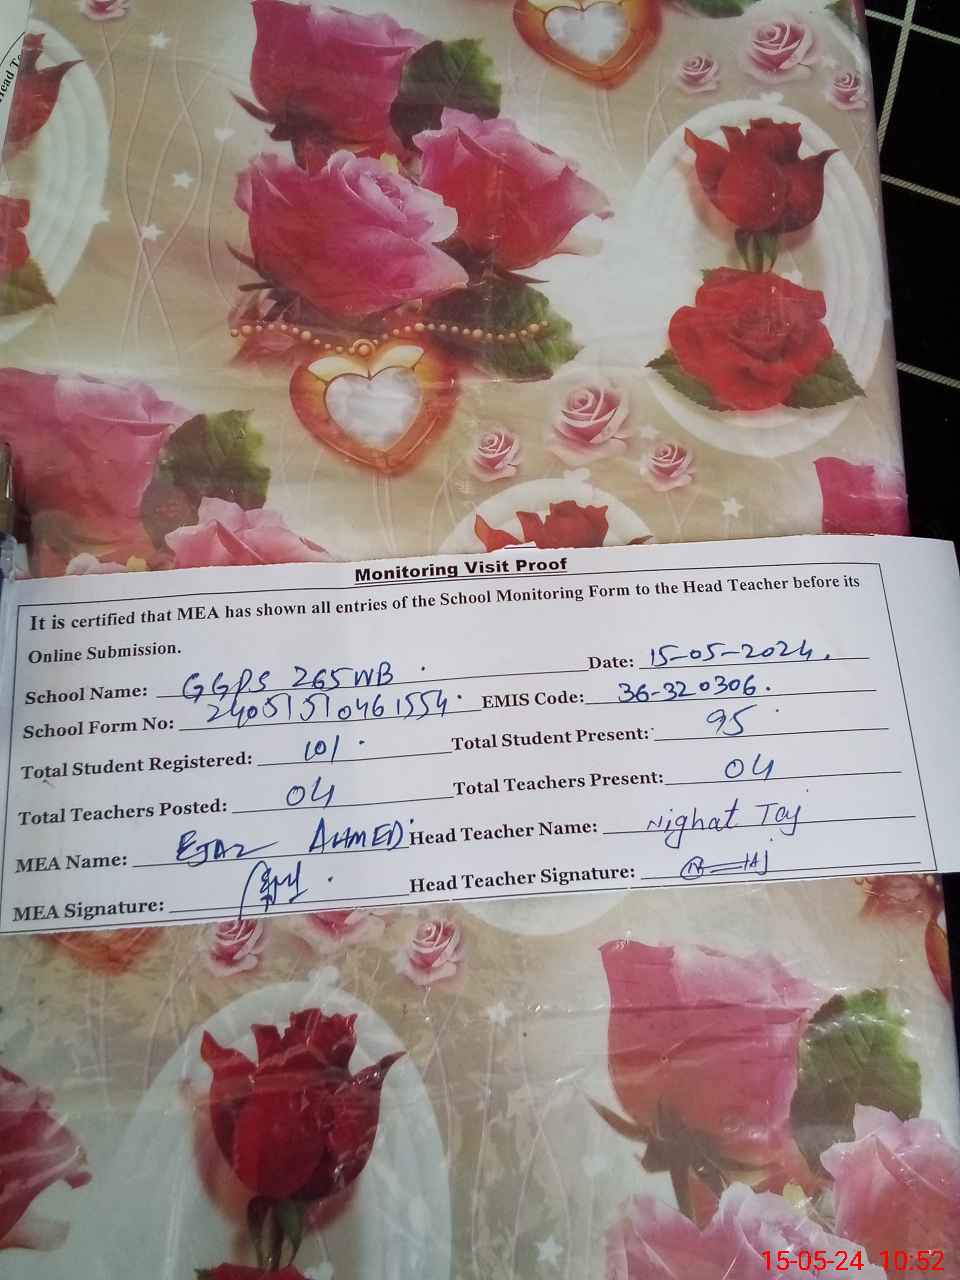 Head Te
Monitoring Visit Proof
It is certified that MEA has shown all entries of the School Monitoring Form to the Head Teacher before its
Online Submission.
School Name: GGPS 265 WB Date: 15-05-2024.
School Form No: 240515150461554 EMIS Code: 36-320306.
Total Student Registered: 101 Total Student Present: 95
Total Teachers Posted: 04 Total Teachers Present: 04
MEA Name: EJAZ AHMED Head Teacher Name: Nighat Taj
MEA Signature: Head Teacher Signature:
15-05-24 10:52